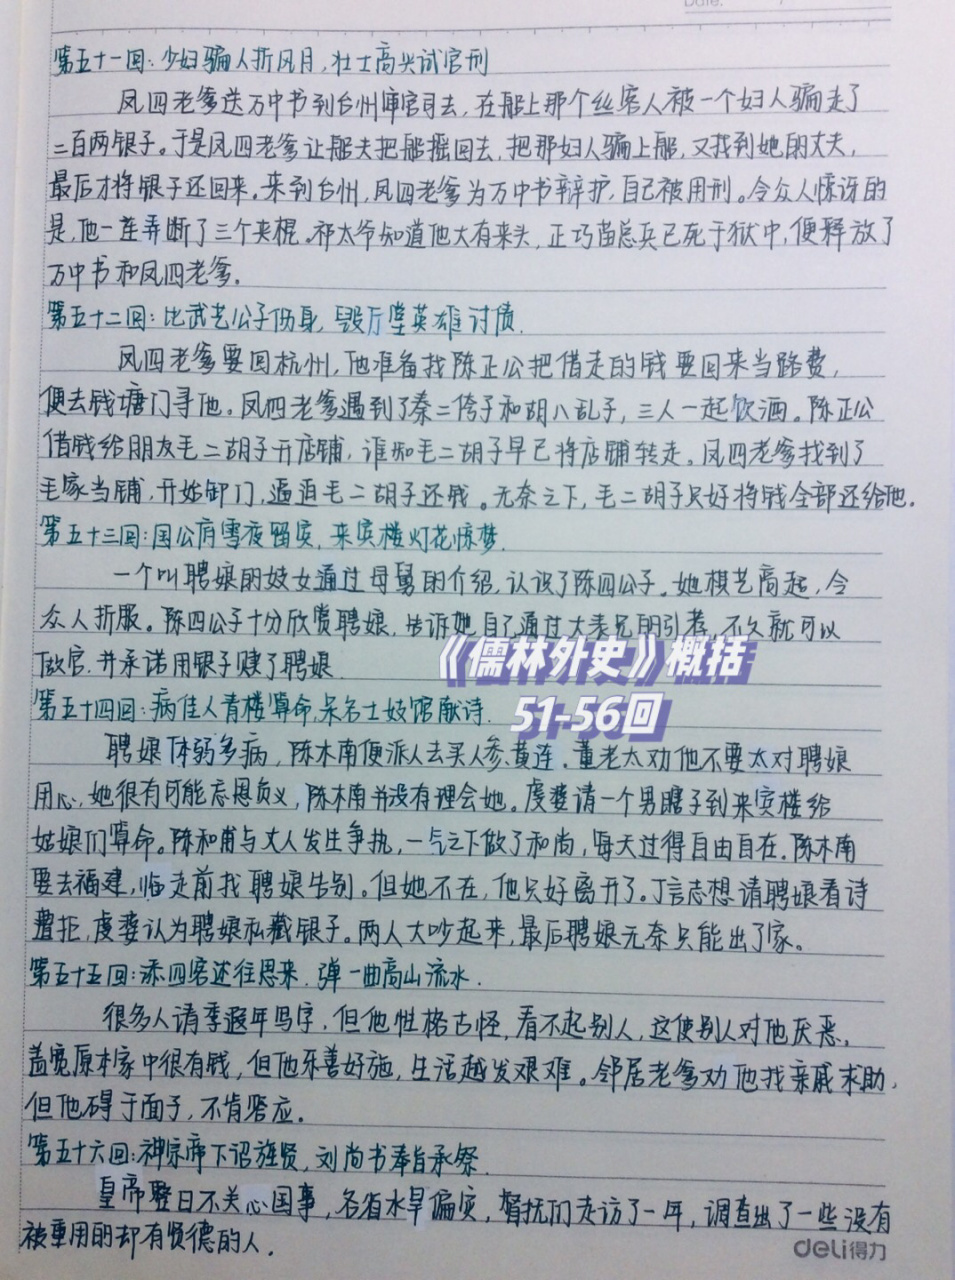 Date:
第五十一回:少妇骗人折风月,壮士高兴试官刑
凤四老爹送万中书到台州审官司去,在船上那个丝客人被一个妇人骗走了
二百两银子。于是凤四老爹让船夫把船摇回去,把那妇人骗上船,又找到她的丈夫,
最后才将银子还回来。来到台州,凤四老爹为万中书辩护,自己被用刑。令众人惊讶的
是,他一连弄断了三个夹棍。祁太爷知道他大有来头,正巧苗总兵已死于狱中,便释放了
万中书和凤四老爹。
第五十二回:比武艺公子伤身,毁厅堂英雄讨债.
凤四老爹要回杭州,他准备找陈正公把借走的钱要回来当路费,
便去钱塘门寻他。凤四老爹遇到了秦二侉子和胡八乱子,三人一起饮酒。陈正公
借钱给朋友毛二胡子开店铺,谁知毛二胡子早已将店铺转走。凤四老爹找到了
毛家当铺,开始卸门,逼迫毛二胡子还钱。无奈之下,毛二胡子只好将钱全部还给他.
第五十三回:国公府雪夜留宾,来宾楼灯花惊梦.
一个叫聘娘的妓女通过母舅的介绍,认识了陈四公子。她棋艺高超,令
众人折服。陈四公子十分欣赏聘娘,告诉她自己通过大表兄的引荐,不久就可以
做官,并承诺用银子赎了聘娘.
《儒林外史》概括
51-56回
第五十四回:病佳人青楼算命,呆名士妓馆献诗.
聘娘体弱多病,陈木南便派人去买人参、黄连.董老太劝他不要太对聘娘
用心,她很有可能忘恩负义,陈木南并没有理会她。虔婆请一个男瞎子到来宾楼给
姑娘们算命。陈和甫与丈人发生争执,一气之下做了和尚,每天过得自由自在.陈木南
要去福建,临走前找聘娘告别。但她不在,他只好离开了。丁言志想请聘娘看诗
遭拒,虔婆认为聘娘私藏银子。两人大吵起来,最后聘娘无奈只能出了家。
第五十五回:添四客述往思来.弹一曲高山流水.
很多人请季遐年写字,但他性格古怪,看不起别人,这使别人对他厌恶,
盖宽原本家中很有钱,但他乐善好施,生活越发艰难。邻居老爹劝他找亲戚求助,
但他碍于面子,不肯答应.
第五十六回:神宗帝下诏旌贤,刘尚书奉旨承祭.
皇帝整日不关心国事,各省水旱偏灾,督抚们走访了一年,调查出了一些没有
被重用的却有贤德的人.
deli得力